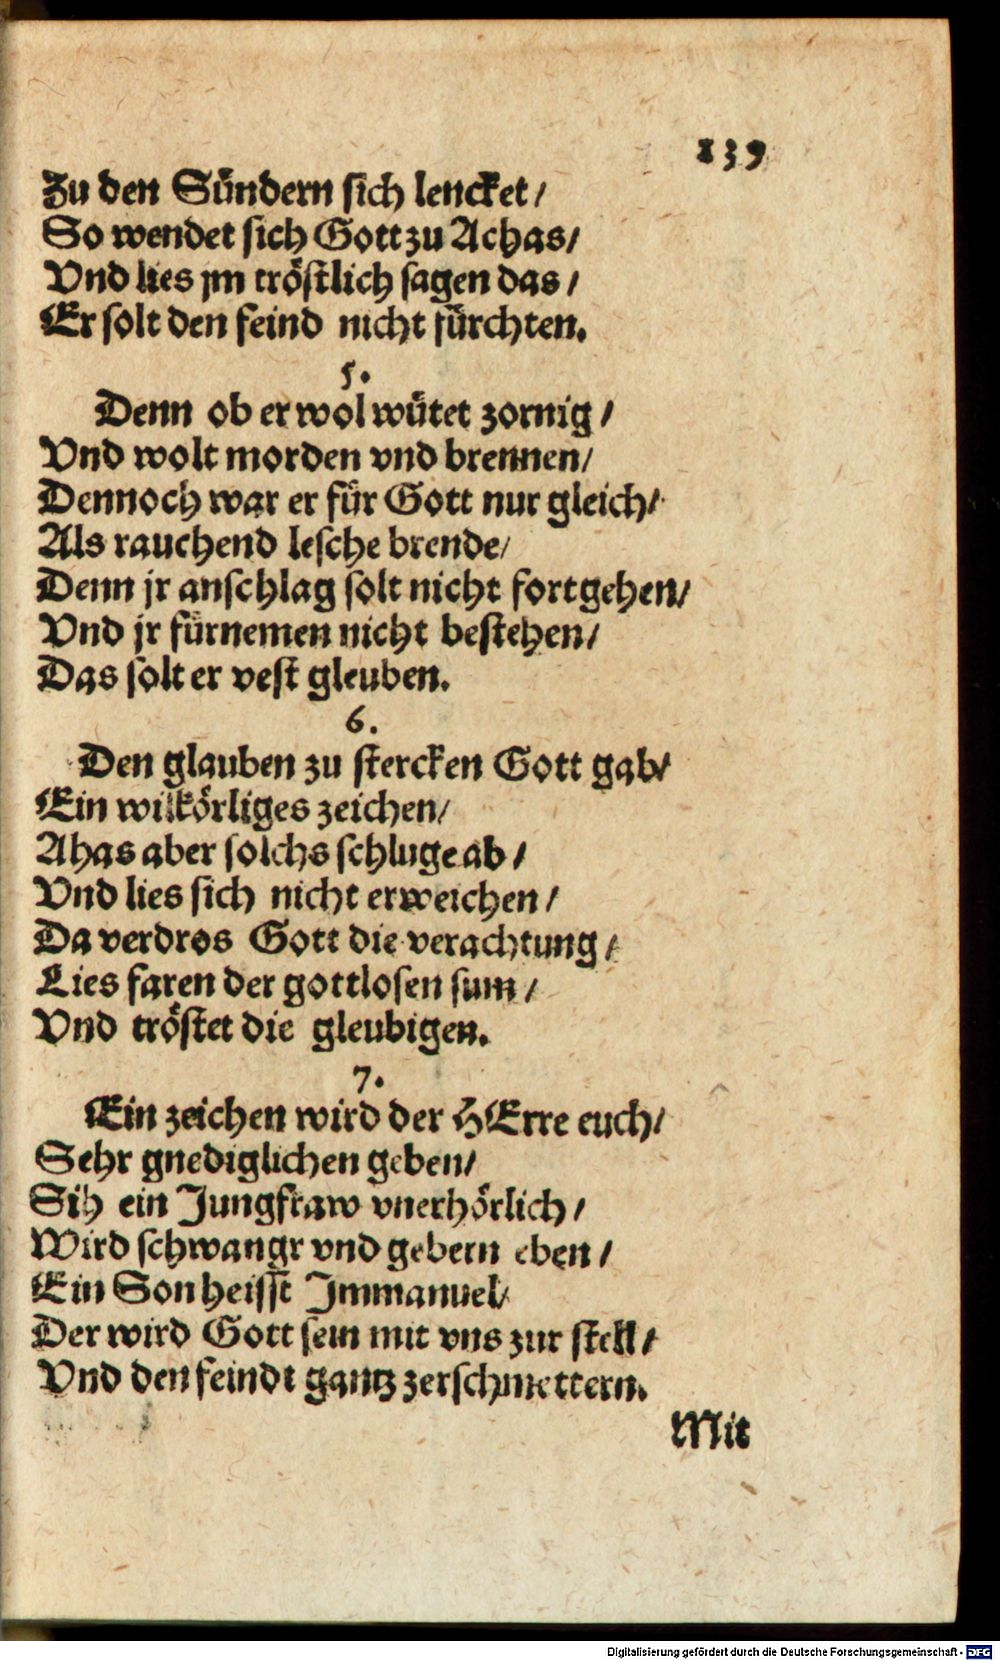 139
Zu den Sündern sich lencket/
So wendet sich Gott zu Achas/
Vnd lies jm tröstlich sagen das/
Er solt den feind nicht fürchten.
5.
Denn ob er wol wütet zornig/
Vnd wolt morden vnd brennen/
Dennoch war er für Gott nur gleich/
Als rauchend lesche brende/
Denn jr anschlag solt nicht fortgehen/
Vnd jr fürnemen nicht bestehen/
Das solt er vest gleuben.
6.
Den glauben zu stercken Gott gab/
Ein wilkörliges zeichen/
Ahas aber solchs schluge ab/
Vnd lies sich nicht erweichen/
Da verdros Gott die verachtung/
Lies faren der gottlosen sum/
Vnd tröstet die gleubigen.
7.
Ein zeichen wird der HErre euch/
Sehr gnediglichen geben/
Sih ein Jungfraw vnerhörlich/
Wird schwangr vnd gebern eben/
Ein Son heisst Immanuel/
Der wird Gott sein mit vns zur stell/
Vnd den feindt gantz zerschmettern.
Mit
Digitalisierung gefördert durch die Deutsche Forschungsgemeinschaft - DFG